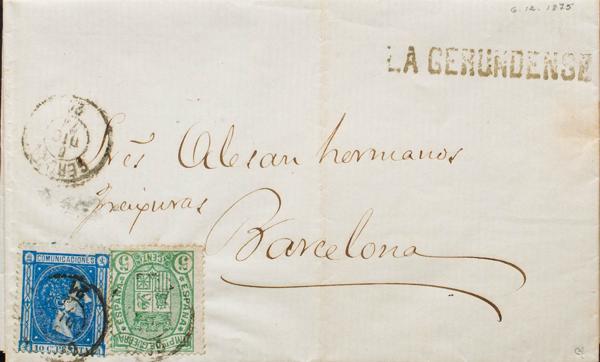 6. 12. 1875
LA GERUNDENSE
GERONA
Sres Alesan hermanos
Freixuras
Barcelona
COMUNICACIONES
10 CENT
5 CENT 5
ESPAÑA
ESPAÑA
IMPTO DE GUERRA